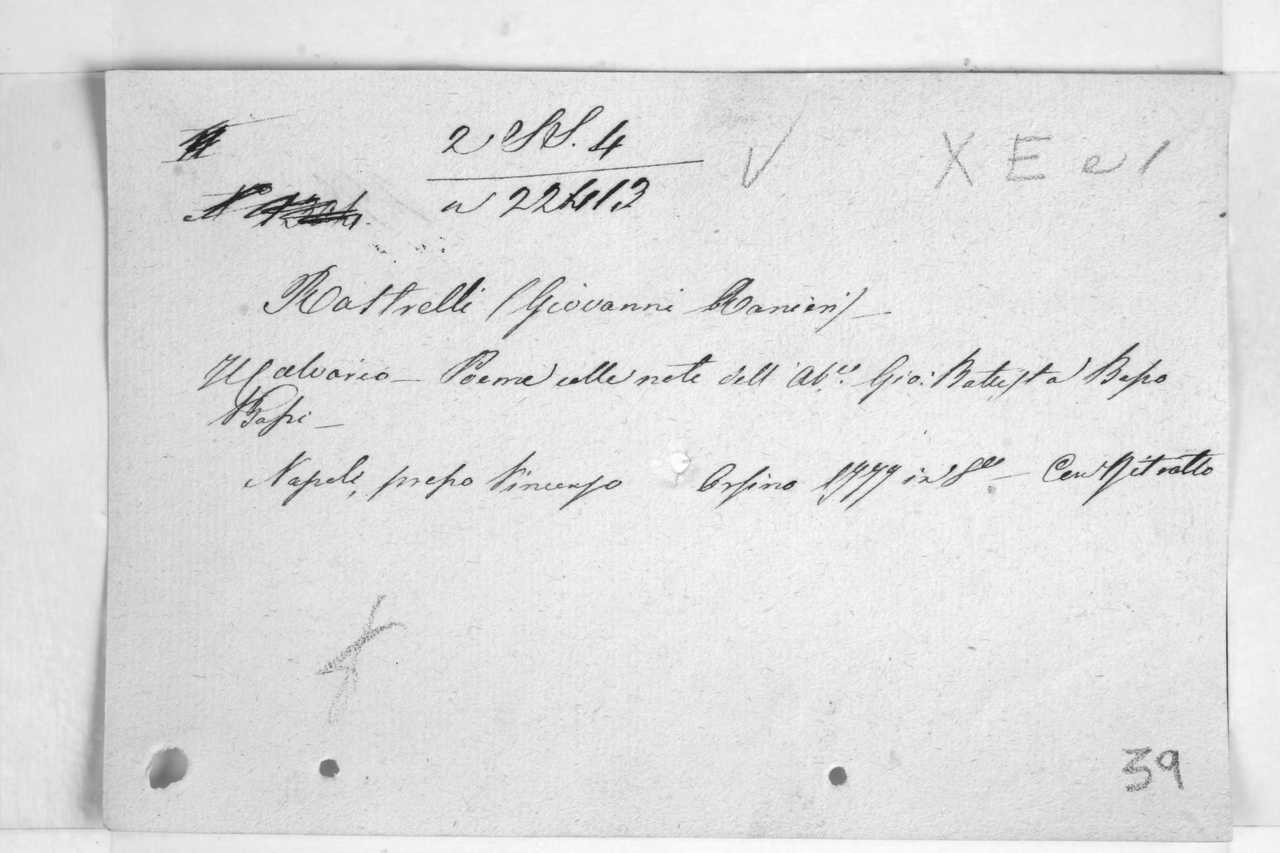 2 SS. 4
n 22413
V X E e 1
Rastrelli (Giovanni Ranieri) —
Il Calvario — Poema colle note dell' Ab.e Gio: Battista
Napoli, presso Vincenzo Orsino 1777 in 8º — Con Ritratto
39